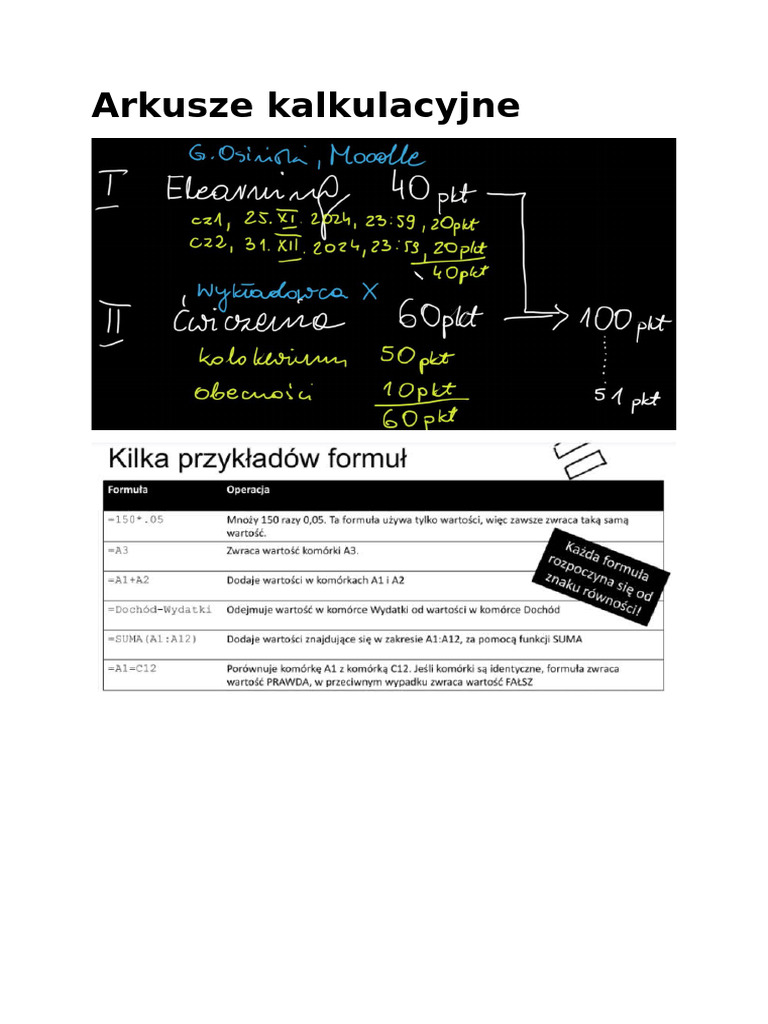 Arkusze kalkulacyjne
G. Osiński, Moodle
I Elearning 40 pkt
cz1, 25. XI. 2024, 23:59, 20pkt
cz2, 31. XII. 2024, 23:59, 20pkt
40pkt
Wykładowca X
II Ćwiczenia 60pkt 100 pkt
kolokwium 50 pkt
obecności 10pkt
51 pkt
60pkt
Kilka przykładów formuł
Formuła Operacja
=150*.05 Mnoży 150 razy 0,05. Ta formuła używa tylko wartości, więc zawsze zwraca taką samą
wartość.
=A3 Zwraca wartość komórki A3.
=A1+A2 Dodaje wartości w komórkach A1 i A2
Każda formuła
rozpoczyna się od
znaku równości!
=Dochód-Wydatki Odejmuje wartość w komórce Wydatki od wartości w komórce Dochód
=SUMA(A1:A12) Dodaje wartości znajdujące się w zakresie A1:A12, za pomocą funkcji SUMA
=A1=C12 Porównuje komórkę A1 z komórką C12. Jeśli komórki są identyczne, formuła zwraca
wartość PRAWDA, w przeciwnym wypadku zwraca wartość FAŁSZ